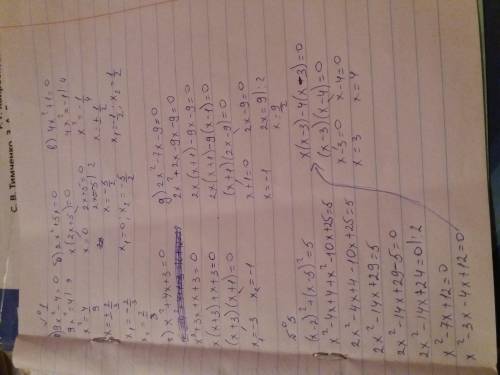 С. В. Тимченко
№1
а) 9x²-4=0
9x²=4|:9
x²=4/9
x=±2/3
x₁=-2/3
x₂=2/3
б) 2x²+5x=0
x(2x+5)=0
x=0 2x+5=0
2x=-5|:2
x=-5/2
x₁=0; x₂=-5/2
в) 4x²+1=0
4x²=-1|:4
x²=-1/4
x=±1/4
x₁=-1/2; x₂=1/2
г) x²+4x+3=0
x²+3x+x+3=0
x(x+3)+x+3=0
(x+3)(x+1)=0
x₁=-3 x₂=-1
д) 2x²-7x-9=0
2x²+2x-9x-9=0
2x(x+1)-9x-9=0
2x(x+1)-9(x+1)=0
(x+1)(2x-9)=0
x+1=0 2x-9=0
x=-1 2x=9|:2
x=9/2
№5
(x-2)²+(x-5)²=5
x²-4x+4+x²-10x+25=5
2x²-4x+4-10x+25=5
2x²-14x+29=5
2x²-14x+29-5=0
2x²-14x+24=0|:2
x²-7x+12=0
x²-3x-4x+12=0
x(x-3)-4(x-3)=0
(x-3)(x-4)=0
x-3=0 x-4=0
x=3 x=4